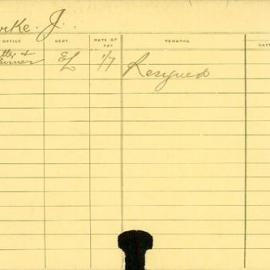 rke. J.
OFFICE DEPT. RATE OF PAY REMARKS DATE
EL 1/7 Resigned